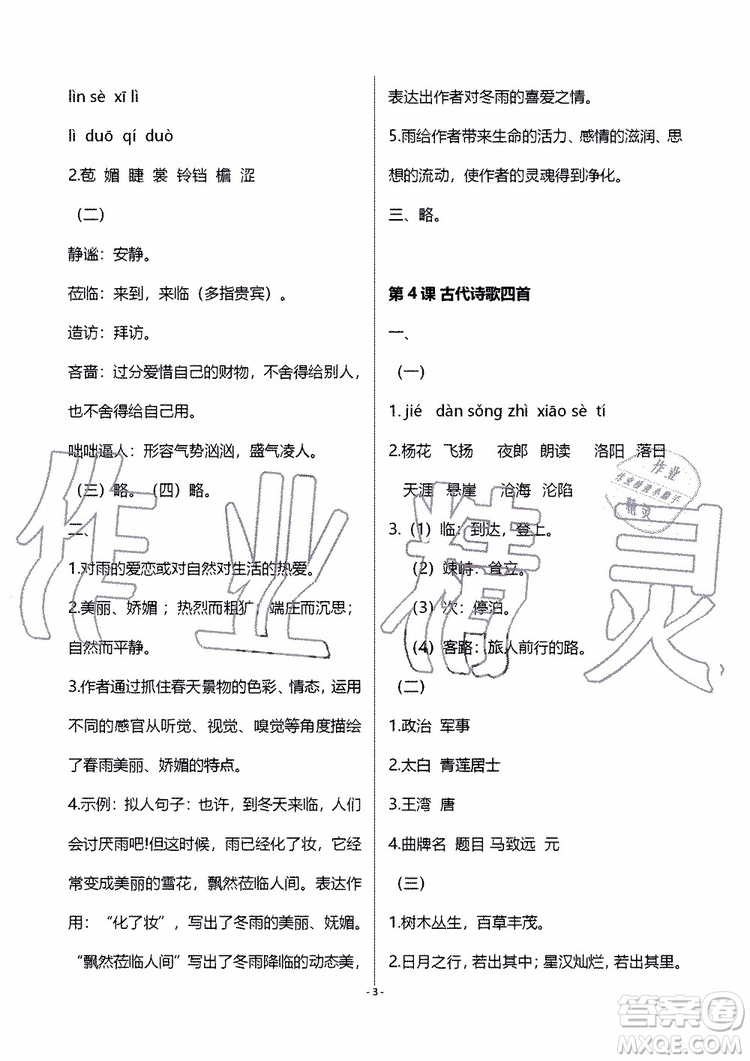 lìn sè  xī lì
lì  duō  qí  duò
2.苞  媚  睫  裳  铃铛  檐  涩
（二）
静谧：安静。
莅临：来到，来临（多指贵宾）。
造访：拜访。
吝啬：过分爱惜自己的财物，不舍得给别人，
也不舍得给自己用。
咄咄逼人：形容气势汹汹，盛气凌人。
（三）略。（四）略。
二、
1.对雨的爱恋或对自然对生活的热爱。
2.美丽、娇媚；热烈而粗犷；端庄而沉思；
自然而平静。
3.作者通过抓住春天景物的色彩、情态，运用
不同的感官从听觉、视觉、嗅觉等角度描绘
了春雨美丽、娇媚的特点。
4.示例：拟人句子：也许，到冬天来临，人们
会讨厌雨吧!但这时候，雨已经化了妆，它经
常变成美丽的雪花，飘然莅临人间。表达作
用：“化了妆”，写出了冬雨的美丽、妩媚。
“飘然莅临人间”写出了冬雨降临的动态美，
表达出作者对冬雨的喜爱之情。
5.雨给作者带来生命的活力、感情的滋润、思
想的流动，使作者的灵魂得到净化。
三、略。
第 4 课 古代诗歌四首
一、
（一）
1.jié   dàn sǒng zhì  xiāo sè  tí
2.杨花  飞扬    夜郎  朗读    洛阳  落日
天涯  悬崖    沧海  沦陷
3.（1）临：到达，登上。
（2）竦峙：耸立。
（3）次：停泊。
（4）客路：旅人前行的路。
（二）
1.政治  军事
2.太白  青莲居士
3.王湾  唐
4.曲牌名  题目 马致远  元
（三）
1.树木丛生，百草丰茂。
2.日月之行，若出其中；星汉灿烂，若出其里。
- 3 -
作业精灵
作业
作业检查小助手
精灵
答案圈
MXQE.COM